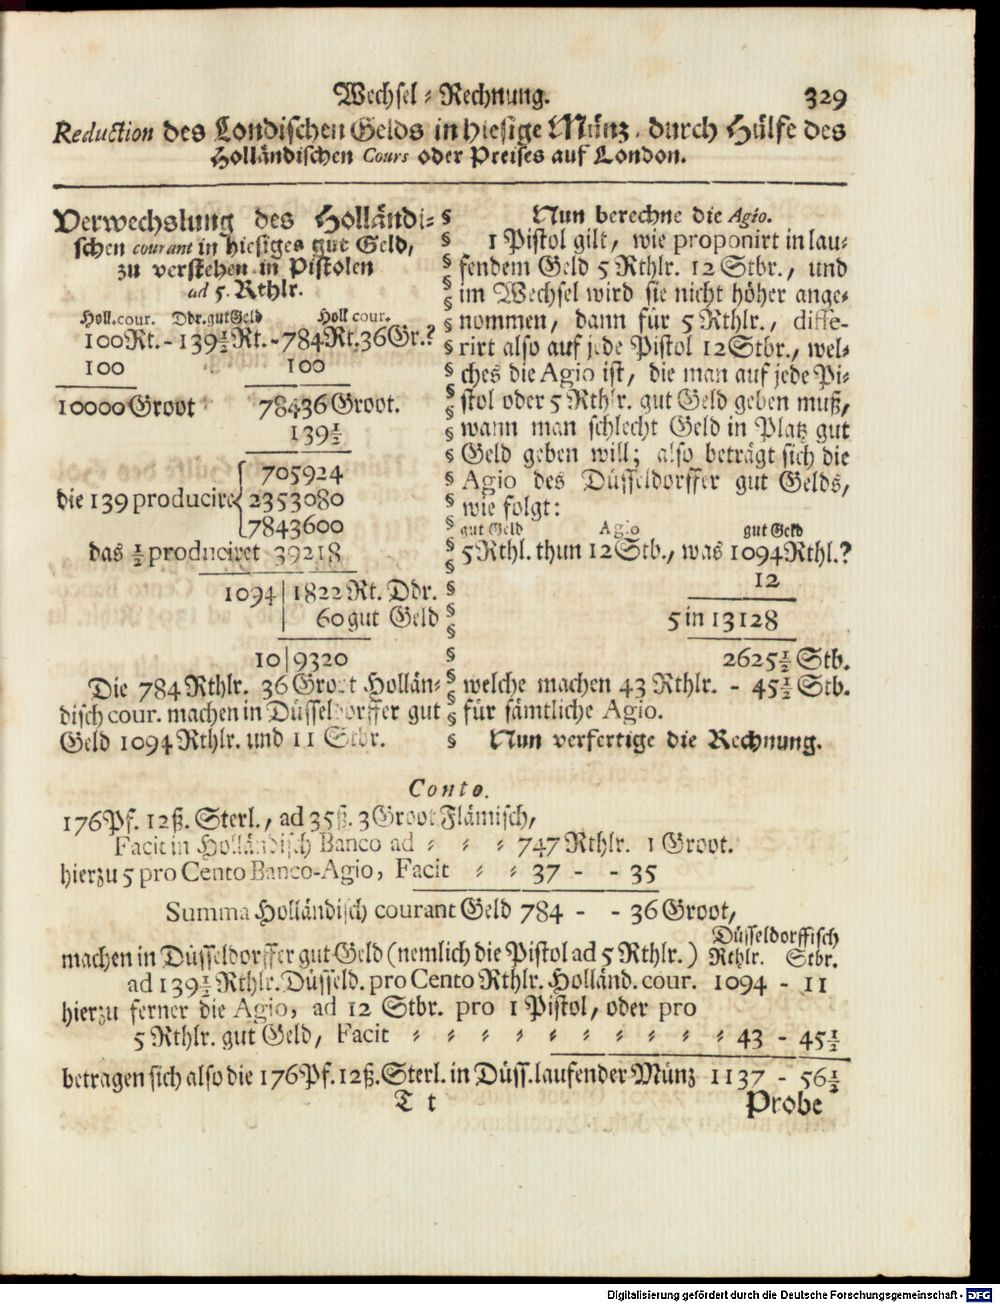 Wechsel-Rechnung. 329
Reduction des Londischen Gelds in hiesige Münz, durch Hülfe des
Holländischen Cours oder Preises auf London.
Verwechslung des Holländi-
schen courant in hiesiges gut Geld,
zu verstehen in Pistolen
ad 5. Rthlr.
Holl. cour. Ddr. gut Geld Holl cour.
100 Rt. - 139½ Rt. - 784 Rt. 36 Gr.?
100 100
10000 Groot 78436 Groot.
139½
705924
die 139 producire 2353080
7843600
das ½ produciret 39218
1094 | 1822 Rt. Ddr.
60 gut Geld
10 | 9320
Die 784 Rthlr. 36 Groot Hollän-
disch cour. machen in Düsseldorffer gut
Geld 1094 Rthlr. und 11 Stbr.
Nun berechne die Agio.
1 Pistol gilt, wie proponirt in lau-
fendem Geld 5 Rthlr. 12 Stbr., und
im Wechsel wird sie nicht höher ange-
nommen, dann für 5 Rthlr., diffe-
rirt also auf jede Pistol 12 Stbr., wel-
ches die Agio ist, die man auf jede Pi-
stol oder 5 Rthlr. gut Geld geben muß,
wann man schlecht Geld in Platz gut
Geld geben will; also beträgt sich die
Agio des Düsseldorffer gut Gelds,
wie folgt:
gut Geld Agio gut Geld
5 Rthl. thun 12 Stb., was 1094 Rthl.?
12
5 in 13128
2625½ Stb.
welche machen 43 Rthlr. - 45½ Stb.
für sämtliche Agio.
Nun verfertige die Rechnung.
Conto.
176 Pf. 12 ß. Sterl., ad 35 ß. 3 Groot Flämisch,
Facit in Holländisch Banco ad - - - 747 Rthlr. 1 Groot.
hierzu 5 pro Cento Banco-Agio, Facit - - 37 - - 35
Summa Holländisch courant Geld 784 - - 36 Groot,
Düsseldorffisch
machen in Düsseldorffer gut Geld (nemlich die Pistol ad 5 Rthlr.) Rthlr. Stbr.
ad 139½ Rthlr. Düsseld. pro Cento Rthlr. Holländ. cour. 1094 - 11
hierzu ferner die Agio, ad 12 Stbr. pro 1 Pistol, oder pro
5 Rthlr. gut Geld, Facit - - - - - - - - - - 43 - 45½
betragen sich also die 176 Pf. 12 ß. Sterl. in Düss. laufender Münz 1137 - 56½
T t Probe
Digitalisierung gefördert durch die Deutsche Forschungsgemeinschaft - DFG